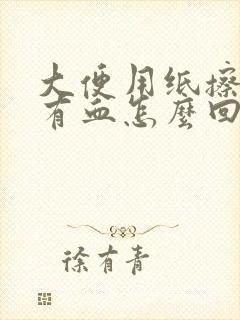 大便用纸擦
有血怎麼回
徐有青